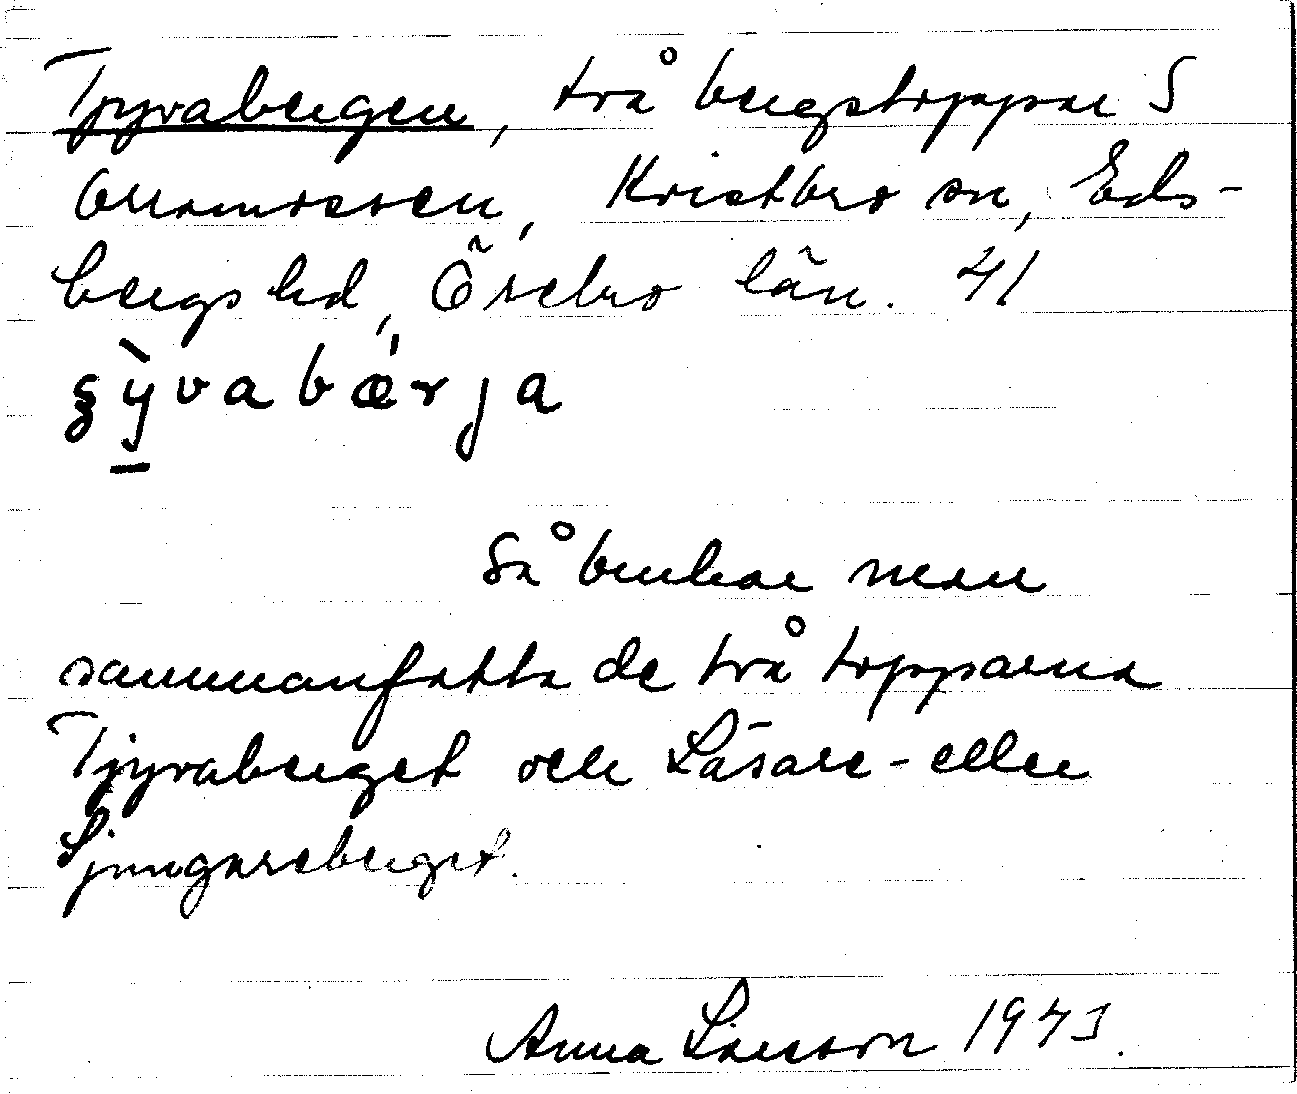 Tjyvabergen, två bergstoppar S
Orramossen, Kvistbro sn, Eds-
bergs hd, Örebro län. 41
ȿỳ̠vabǽrja
Så brukar man
sammanfatta de två topparna
Tjyvaberget och Läsare- eller
Sjungareberget.
Anna Larsson 1973.